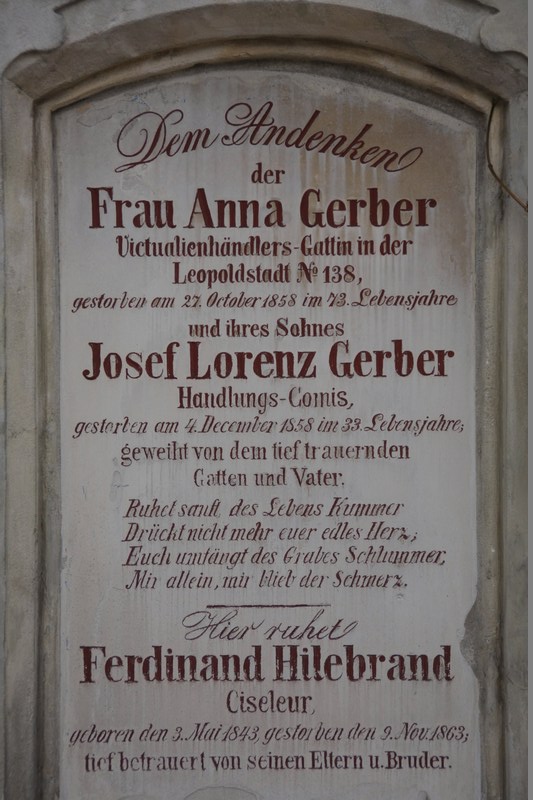 Dem Andenken
der
Frau Anna Gerber
Victualienhändlers-Gattin in der
Leopoldstadt No 138,
gestorben am 27. October 1858 im 73. Lebensjahre
und ihres Sohnes
Josef Lorenz Gerber
Handlungs-Comis,
gestorben am 4. December 1858 im 33. Lebensjahre;
geweiht von dem tief trauernden
Gatten und Vater.
Ruhet sanft, des Lebens Kummer
Drückt nicht mehr euer edles Herz;
Euch umfängt des Grabes Schlummer,
Mir allein, mir blieb der Schmerz.
Hier ruhet
Ferdinand Hilebrand
Ciseleur,
geboren den 3. Mai 1843, gestorben den 9. Nov. 1863;
tief betrauert von seinen Eltern u. Bruder.